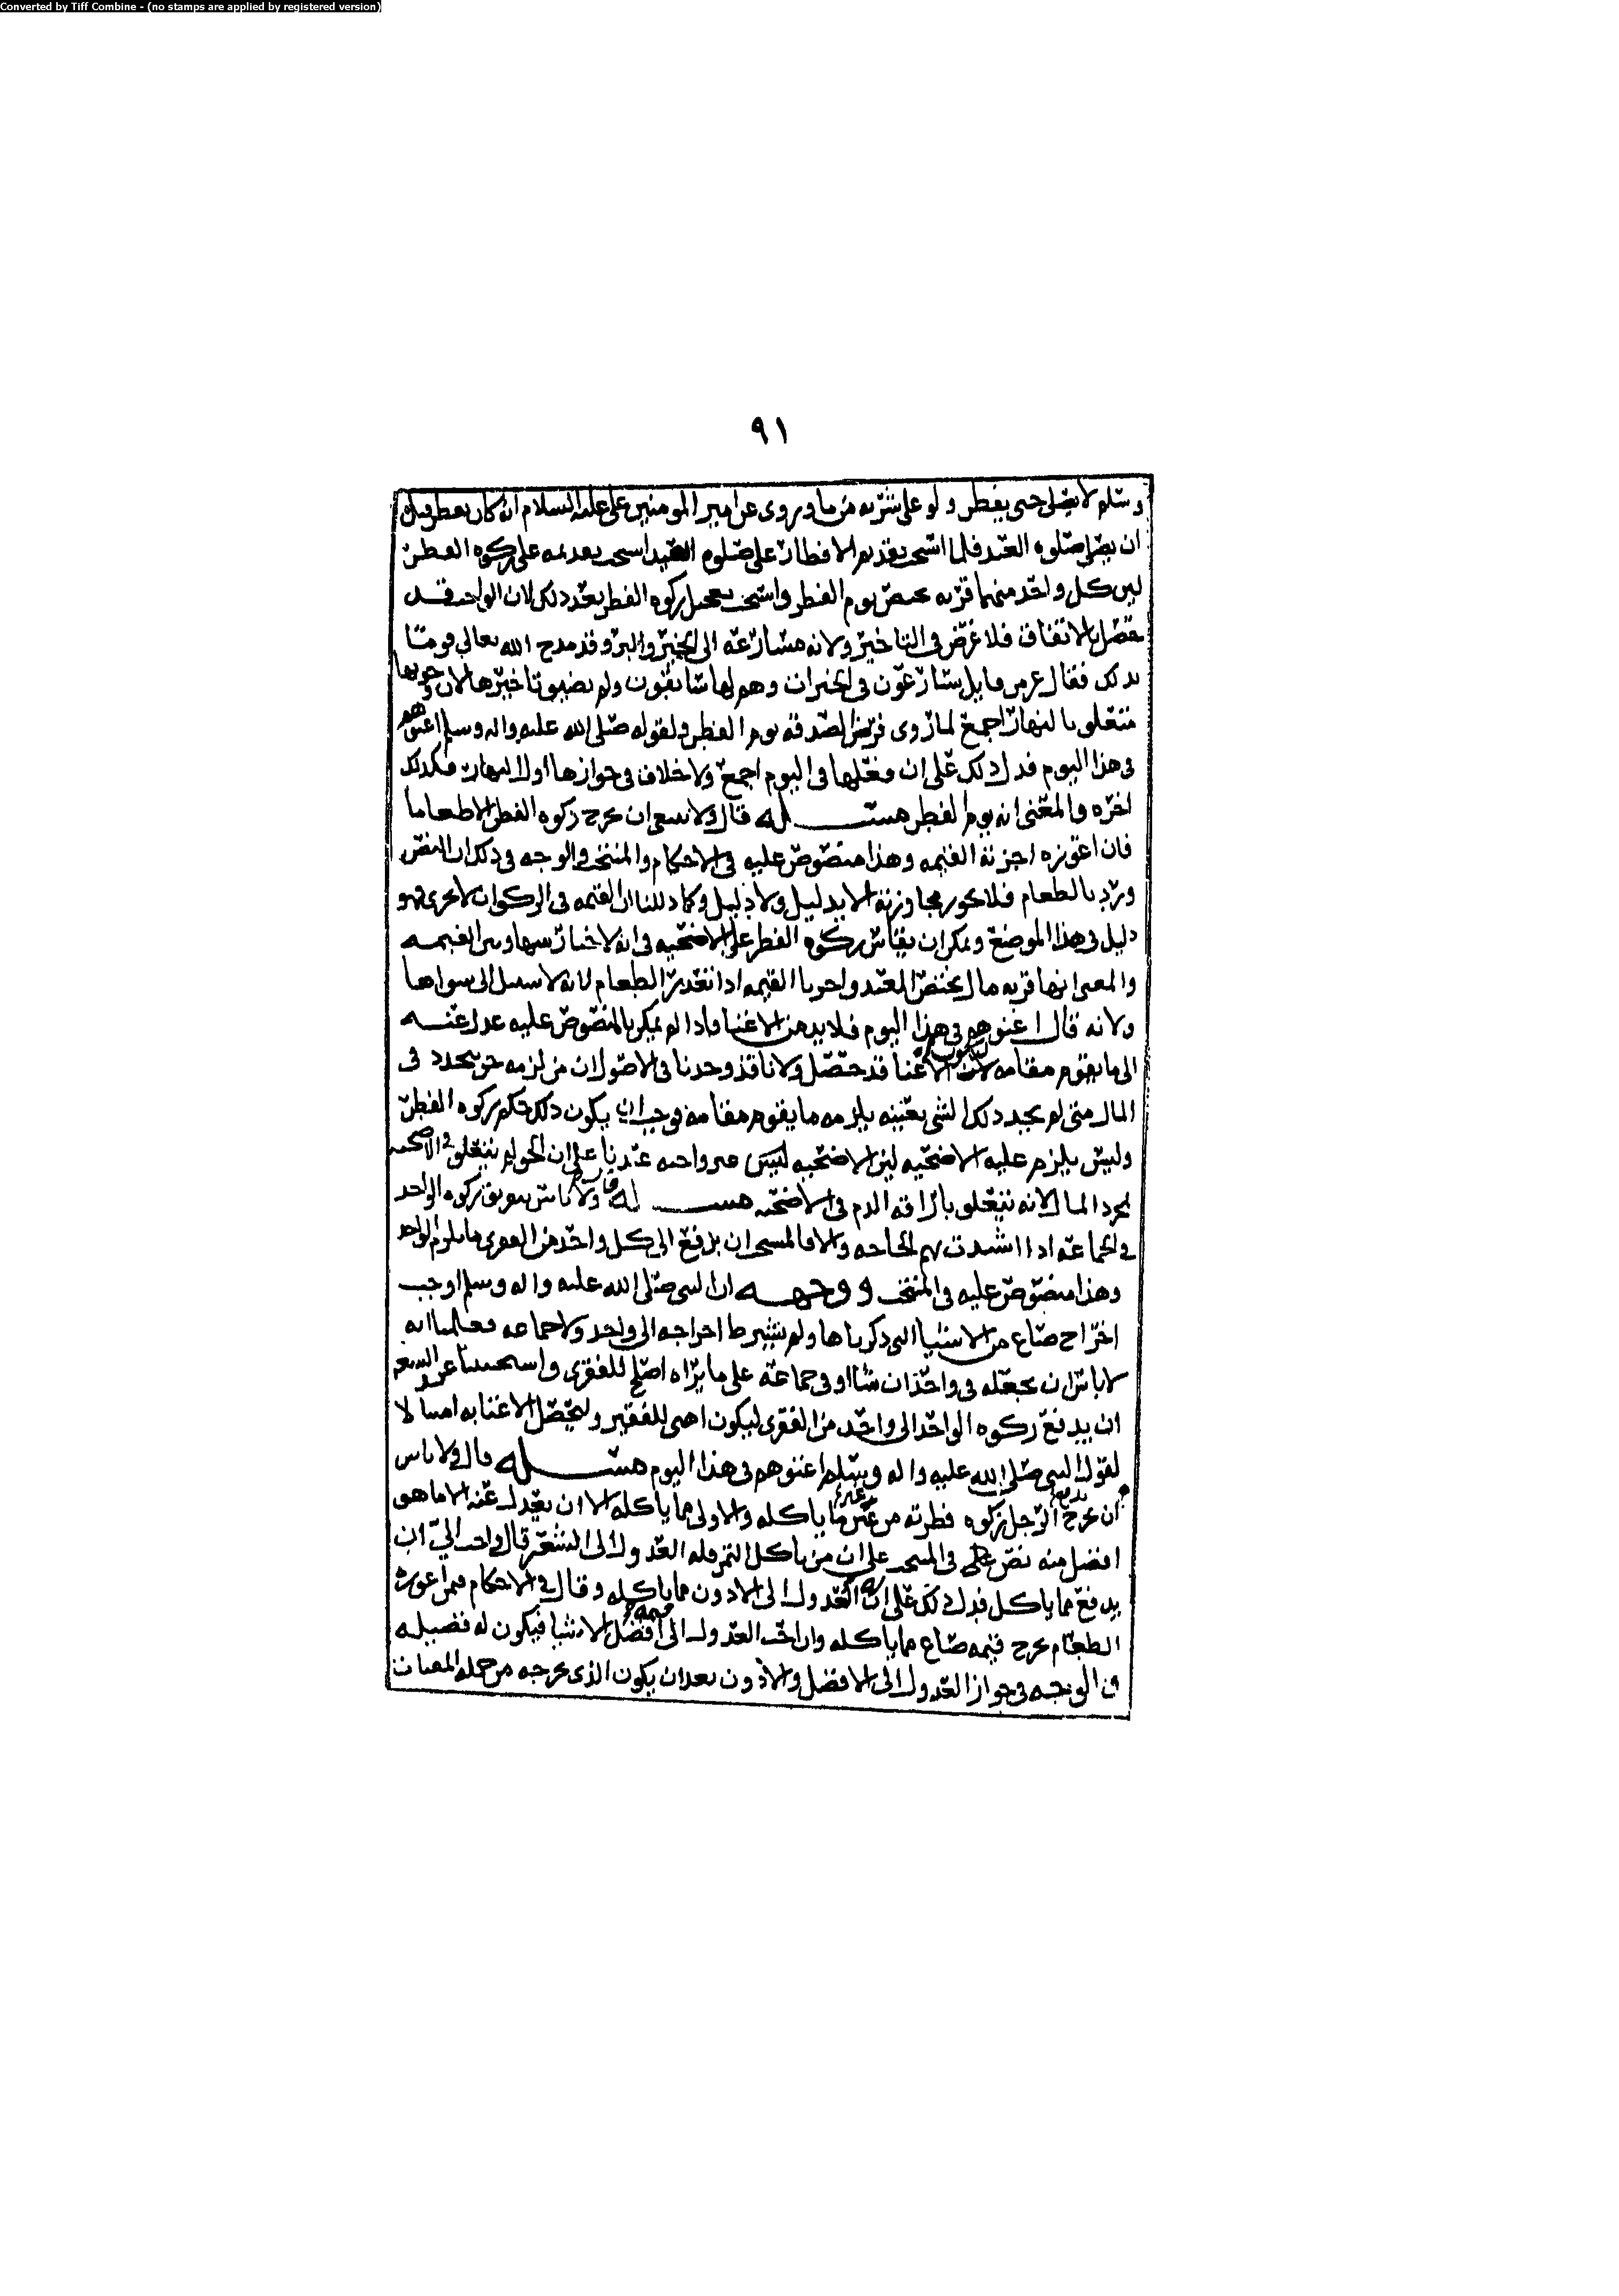 Converted by Tiff Combine - (no stamps are applied by registered version)
٩١
وسلم لا يصلي حتى يفطر ولو على شربه من ما وروى عن امير المومنين على عليه السلام انه كان يفطر قبل
ان يصلي صلوه العيد فلما استحب تقديم الافطار على صلوه العيد استحب تقديمه على زكوه الفطر
لين كل واحد منهما قربه تختص يوم الفطر واستحب تعجيل زكوه الفطر بعد ذلك لان الواجب قد
حصل بالاتفاق فلا غرض في التاخير ولانه مسارعه الى الخير والبر وقد مدح الله تعالى قوما
بذلك فقال عز من قايل يسارعون في الخيرات وهم لها سابقون ولم يضيق تاخيرها لان وجوبها
متعلق بالنهار اجمع لما روى فرض الصدقه يوم الفطر ولقوله صلى الله عليه واله وسلم اغنوهم
في هذا اليوم فدل ذلك على ان فعلها في اليوم اجمع ولا خلاف في جوازها اول النهار فكذلك
اخره والمعنى انه يوم الفطر مسـله قال ولا ينبغي ان يخرج زكوه الفطر الا طعاما
فان اعوزه اجزته القيمه وهذا منصوص عليه في الاحكام والمنتخب والوجه في ذلك ان النص
ورد بالطعام فلا يجوز مجاوزته الا بدليل ولا دليل وكما دللنا ان القيمه في الزكوات لا تجزى فهو
دليل في هذا الموضع ويمكن ان يقاس زكوه الفطر على الاضحيه في انه لا خيار بينها وبين القيمه
والمعنى انها قربه مال يختص العيد واجزنا القيمه اذا تعذر الطعام لانه لا سبيل الى سواها
ولانه قال اغنوهم في هذا اليوم فلا بد من الاغنا فاذا لم يمكن بالمنصوص عليه عدل عنه
الى ما يقوم مقامه ليكون الاغنا قد حصل ولانا قد وجدنا في الاصول ان من لزمه حق يتجدد في
المال متى لم يجد ذلك الشي بعينه يلزمه ما يقوم مقامه فوجب ان يكون ذلك حكم زكوه الفطر
وليس يلزم عليه الاضحيه لين الاضحيه ليس واجبه عندنا على ان الحق لم يتعلق في الاضحيه
بمجرد المال لانه يتعلق باراقه الدم في الاضحيه مسـله قال ولا باس بتفريق زكوه الواحد
في الجماعه اذا اشتدت بهم الحاجه والا فالمستحب ان يدفع الى كل واحد من الفقرى ما يلزم الواحد
وهذا منصوص عليه في المنتخب ووجهه ان النبي صلى الله عليه واله وسلم اوجب
اخراج صاع من الاشيا التي ذكرناها ولم يشترط اخراجه الى واحد ولا جماعه فعلمنا انه
لا باس ان يجعله في واحد ان شا او في جماعه على ما يراه اصلح للفقرى واستحببنا عند السعه
ان يدفع زكوه الواحد الى واحد من الفقرى ليكون اهنى للفقير وليحصل الاغنا به امتثالا
لقول النبي صلى الله عليه واله وسلم اغنوهم في هذا اليوم مسـله قال ولا باس
ان يخرج الرجل زكوه فطرته من غير ما ياكله والاولى مما ياكله الا ان يعدل عنه الى ما هو
افضل منه نص في المنتخب على ان من ياكل التمر فله العدول الى الشعير قال واحب الي ان
يدفع مما ياكل فدل ذلك على ان له العدول الى الادون مما ياكله وقال في الاحكام فيمن اعوزه
الطعام يخرج قيمه صاع مما ياكله وان احب العدول الى قيمه افضل الاشيا فيكون له فضيله
الوجه في جواز العدول الى الافضل والادون بعد ان يكون الذي يخرجه من جمله المقتات